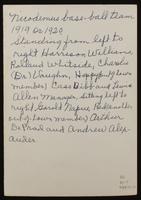 Nicodemus base-ball team
1919 or 1920
Standing from left to
right Harrison Williams,
Rolland Whitside, Charlie
(Dr) Vaughn,
member) Cass Dibb and Lewis
Allen Manager, sitting left to
right Garold Napue
out of town member Arthur
DePrad and Andrew Alex-
ander